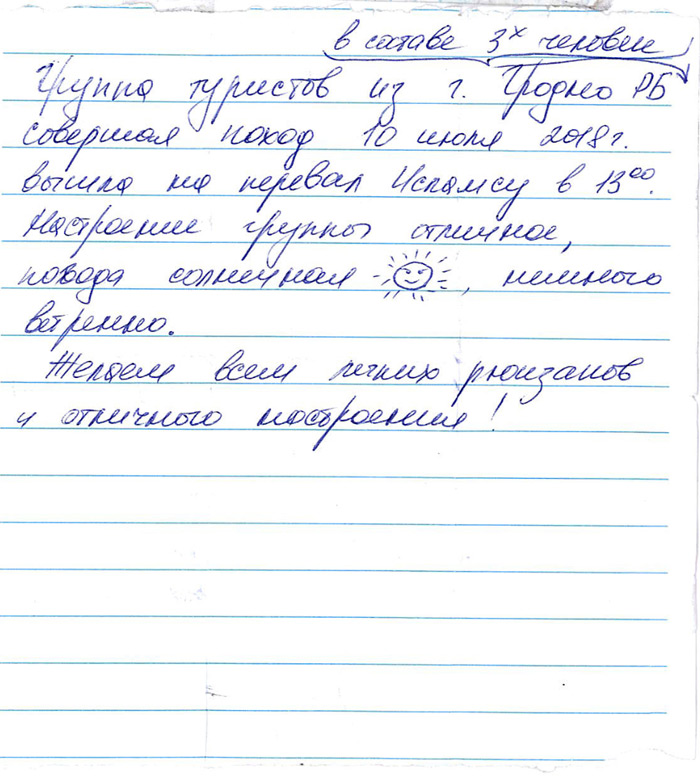 в составе 3х человек
Группа туристов из г. Гродно РБ
совершая поход 10 июля 2018 г.
вышла на перевал Исламсу в 13⁰⁰.
Настроение группы отличное,
погода солнечная , немного
ветренно.
Желаем всем легких рюкзаков
и отличного настроения!